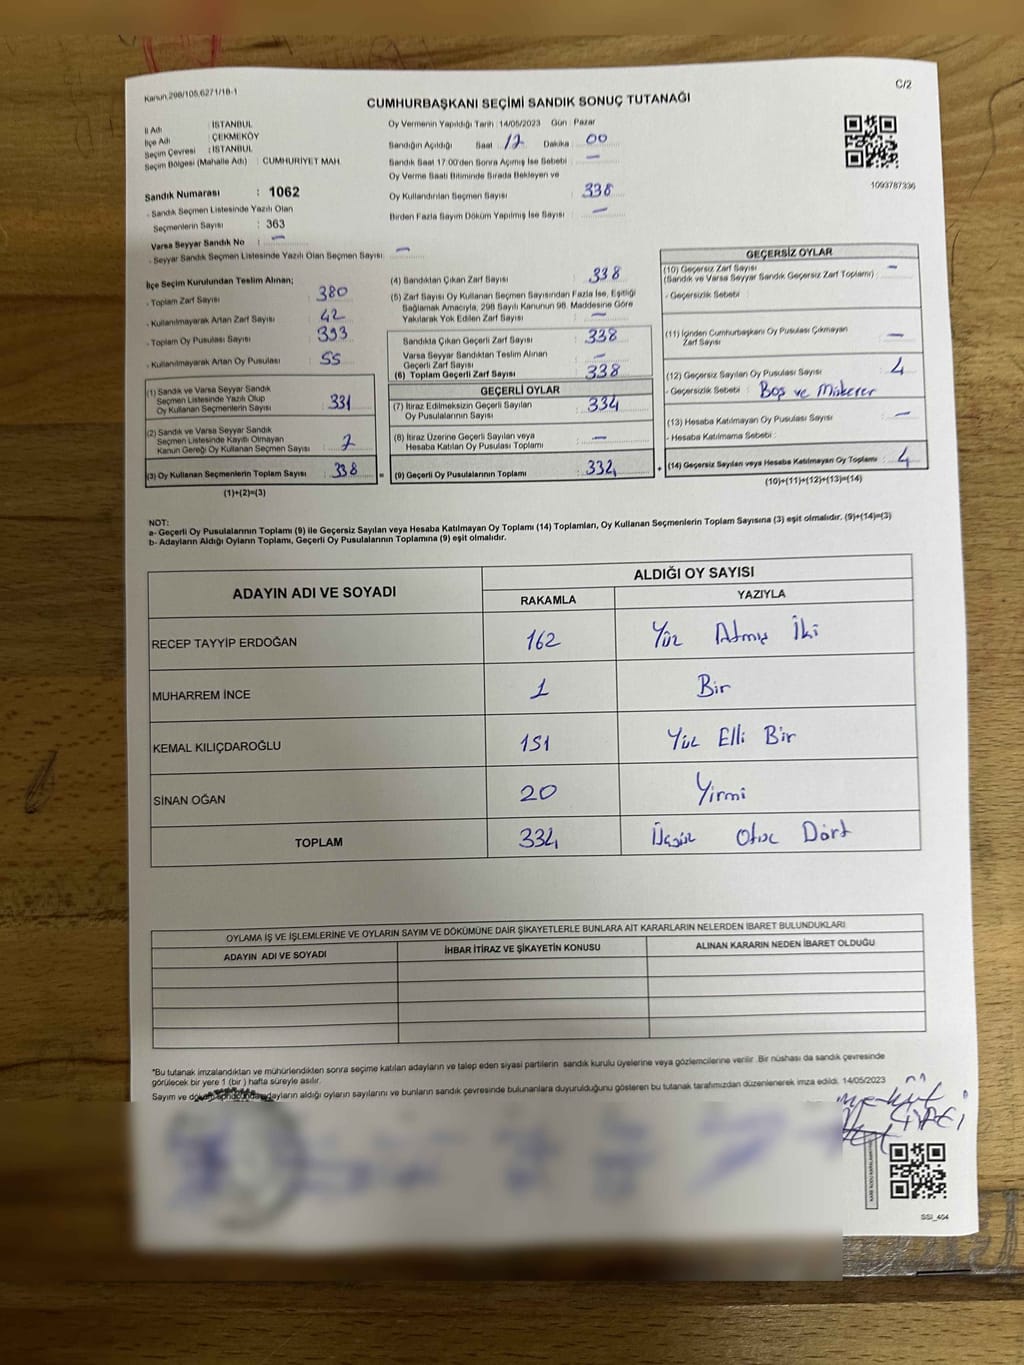 Kanun,298/105,6271/18-1
C/2
CUMHURBAŞKANI SEÇİMİ SANDIK SONUÇ TUTANAĞI
İl Adı : İSTANBUL
İlçe Adı : ÇEKMEKÖY
Seçim Çevresi : İSTANBUL
Seçim Bölgesi (Mahalle Adı) : CUMHURİYET MAH.
Sandık Numarası : 1062
- Sandık Seçmen Listesinde Yazılı Olan
Seçmenlerin Sayısı : 363
Varsa Seyyar Sandık No : —
- Seyyar Sandık Seçmen Listesinde Yazılı Olan Seçmen Sayısı: —
Oy Vermenin Yapıldığı Tarih : 14/05/2023 Gün : Pazar
Sandığın Açıldığı Saat 17 Dakika 00
Sandık Saat 17.00'den Sonra Açımış İse Sebebi : —
Oy Verme Saati Bitiminde Sırada Bekleyen ve
Oy Kullandırılan Seçmen Sayısı : 338
Birden Fazla Sayım Döküm Yapılmış İse Sayısı : —
1093787336
İlçe Seçim Kurulundan Teslim Alınan;
- Toplam Zarf Sayısı : 380
- Kullanılmayarak Artan Zarf Sayısı : 42
- Toplam Oy Pusulası Sayısı : 393
- Kullanılmayarak Artan Oy Pusulası : 55
(1) Sandık ve Varsa Seyyar Sandık
Seçmen Listesinde Yazılı Olup
Oy Kullanan Seçmenlerin Sayısı : 331
(2) Sandık ve Varsa Seyyar Sandık
Seçmen Listesinde Kayıtlı Olmayan
Kanun Gereği Oy Kullanan Seçmen Sayısı : 7
(3) Oy Kullanan Seçmenlerin Toplam Sayısı : 338
(1)+(2)=(3)
(4) Sandıktan Çıkan Zarf Sayısı : 338
(5) Zarf Sayısı Oy Kullanan Seçmen Sayısından Fazla İse, Eşitliği
Sağlamak Amacıyla, 298 Sayılı Kanunun 98. Maddesine Göre
Yakılarak Yok Edilen Zarf Sayısı : —
Sandıkta Çıkan Geçerli Zarf Sayısı : 338
Varsa Seyyar Sandıktan Teslim Alınan
Geçerli Zarf Sayısı : —
(6) Toplam Geçerli Zarf Sayısı : 338
GEÇERLİ OYLAR
(7) İtiraz Edilmeksizin Geçerli Sayılan
Oy Pusulalarının Sayısı : 334
(8) İtiraz Üzerine Geçerli Sayılan veya
Hesaba Katılan Oy Pusulası Toplamı : —
= (9) Geçerli Oy Pusulalarının Toplamı : 334
GEÇERSİZ OYLAR
(10) Geçersiz Zarf Sayısı
(Sandık ve Varsa Seyyar Sandık Geçersiz Zarf Toplamı) : —
- Geçersizlik Sebebi :
(11) İçinden Cumhurbaşkanı Oy Pusulası Çıkmayan
Zarf Sayısı : —
(12) Geçersiz Sayılan Oy Pusulası Sayısı : 4
- Geçersizlik Sebebi : Boş ve Mükerer
(13) Hesaba Katılmayan Oy Pusulası Sayısı : —
- Hesaba Katılmama Sebebi :
+ (14) Geçersiz Sayılan veya Hesaba Katılmayan Oy Toplamı : 4
(10)+(11)+(12)+(13)=(14)
NOT:
a- Geçerli Oy Pusulalarının Toplamı (9) ile Geçersiz Sayılan veya Hesaba Katılmayan Oy Toplamı (14) Toplamları, Oy Kullanan Seçmenlerin Toplam Sayısına (3) eşit olmalıdır. (9)+(14)=(3)
b- Adayların Aldığı Oyların Toplamı, Geçerli Oy Pusulalarının Toplamına (9) eşit olmalıdır.
ADAYIN ADI VE SOYADI
ALDIĞI OY SAYISI
RAKAMLA YAZIYLA
RECEP TAYYİP ERDOĞAN 162 Yüz Atmış İki
MUHARREM İNCE 1 Bir
KEMAL KILIÇDAROĞLU 151 Yüz Elli Bir
SİNAN OĞAN 20 Yirmi
TOPLAM 334 Üçyüz Otuz Dört
OYLAMA İŞ VE İŞLEMLERİNE VE OYLARIN SAYIM VE DÖKÜMÜNE DAİR ŞİKAYETLERLE BUNLARA AİT KARARLARIN NELERDEN İBARET BULUNDUKLARI
ADAYIN ADI VE SOYADI İHBAR İTİRAZ VE ŞİKAYETİN KONUSU ALINAN KARARIN NEDEN İBARET OLDUĞU
*Bu tutanak imzalandıktan ve mühürlendikten sonra seçime katılan adayların ve talep eden siyasi partilerin sandık kurulu üyelerine veya gözlemcilerine verilir. Bir nüshası da sandık çevresinde
görülecek bir yere 1 (bir ) hafta süreyle asılır.
Sayım ve döküm sonucunda adayların aldığı oyların sayılarını ve bunların sandık çevresinde bulunanlara duyurulduğunu gösteren bu tutanak tarafımızdan düzenlenerek imza edildi. 14/05/2023
SSI_464